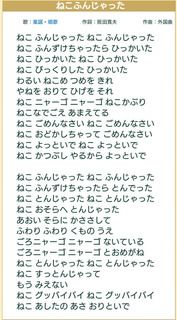 ねこふんじゃった
歌：童謡・唱歌 作詞：阪田寛夫 作曲：外国曲
ねこ ふんじゃった ねこ ふんじゃった
ねこ ふんずけちゃったら ひっかいた
ねこ ひっかいた ねこ ひっかいた
ねこ びっくりした ひっかいた
わるい ねこめ つめを きれ
やねを おりて ひげを それ
ねこ ニャーゴ ニャーゴ ねこかぶり
ねこなでごえ あまえてる
ねこ ごめんなさい ねこ ごめんなさい
ねこ おどかしちゃって ごめんなさい
ねこ よっといで ねこ よっといで
ねこ かつぶし やるから よっといで
ねこ ふんじゃった ねこ ふんじゃった
ねこ ふんずけちゃったら とんでった
ねこ とんじゃった ねこ とんじゃった
ねこ おそらへ とんじゃった
あおい そらに かささして
ふわり ふわり くもの うえ
ごろニャーゴ ニャーゴ ないている
ごろニャーゴ ニャーゴ とおめがね
ねこ とんじゃった ねこ とんじゃった
ねこ すっとんじゃって
もう みえない
ねこ グッバイバイ ねこ グッバイバイ
ねこ あしたの あさ おりといで